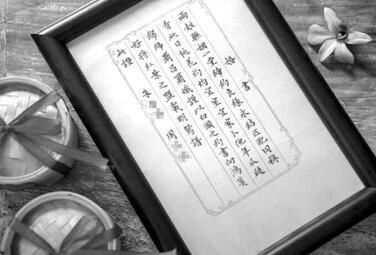 婚書
兩姓聯姻一堂締約良緣永結匹配同稱
看此日桃花灼灼宜室宜家卜他年瓜瓞
綿綿爾昌爾熾謹以白頭之約書向鴻箋
好將紅葉之盟載明鴛譜
此證 朱 周